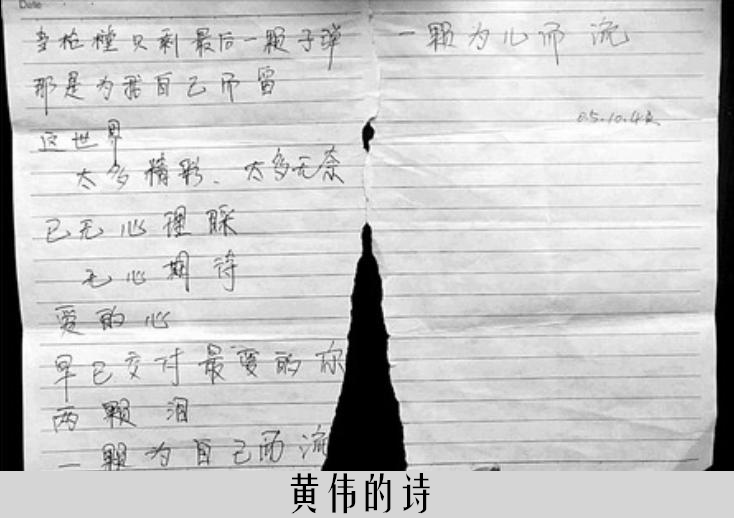 Date
当枪膛只剩最后一颗子弹
那是为我自己而留
这世界
太多精彩、太多无奈
已无心理睬
无心期待
爱的心
早已交付最爱的你
两颗泪
一颗为自己而流
一颗为心而流
05.10.4夜
黄伟的诗